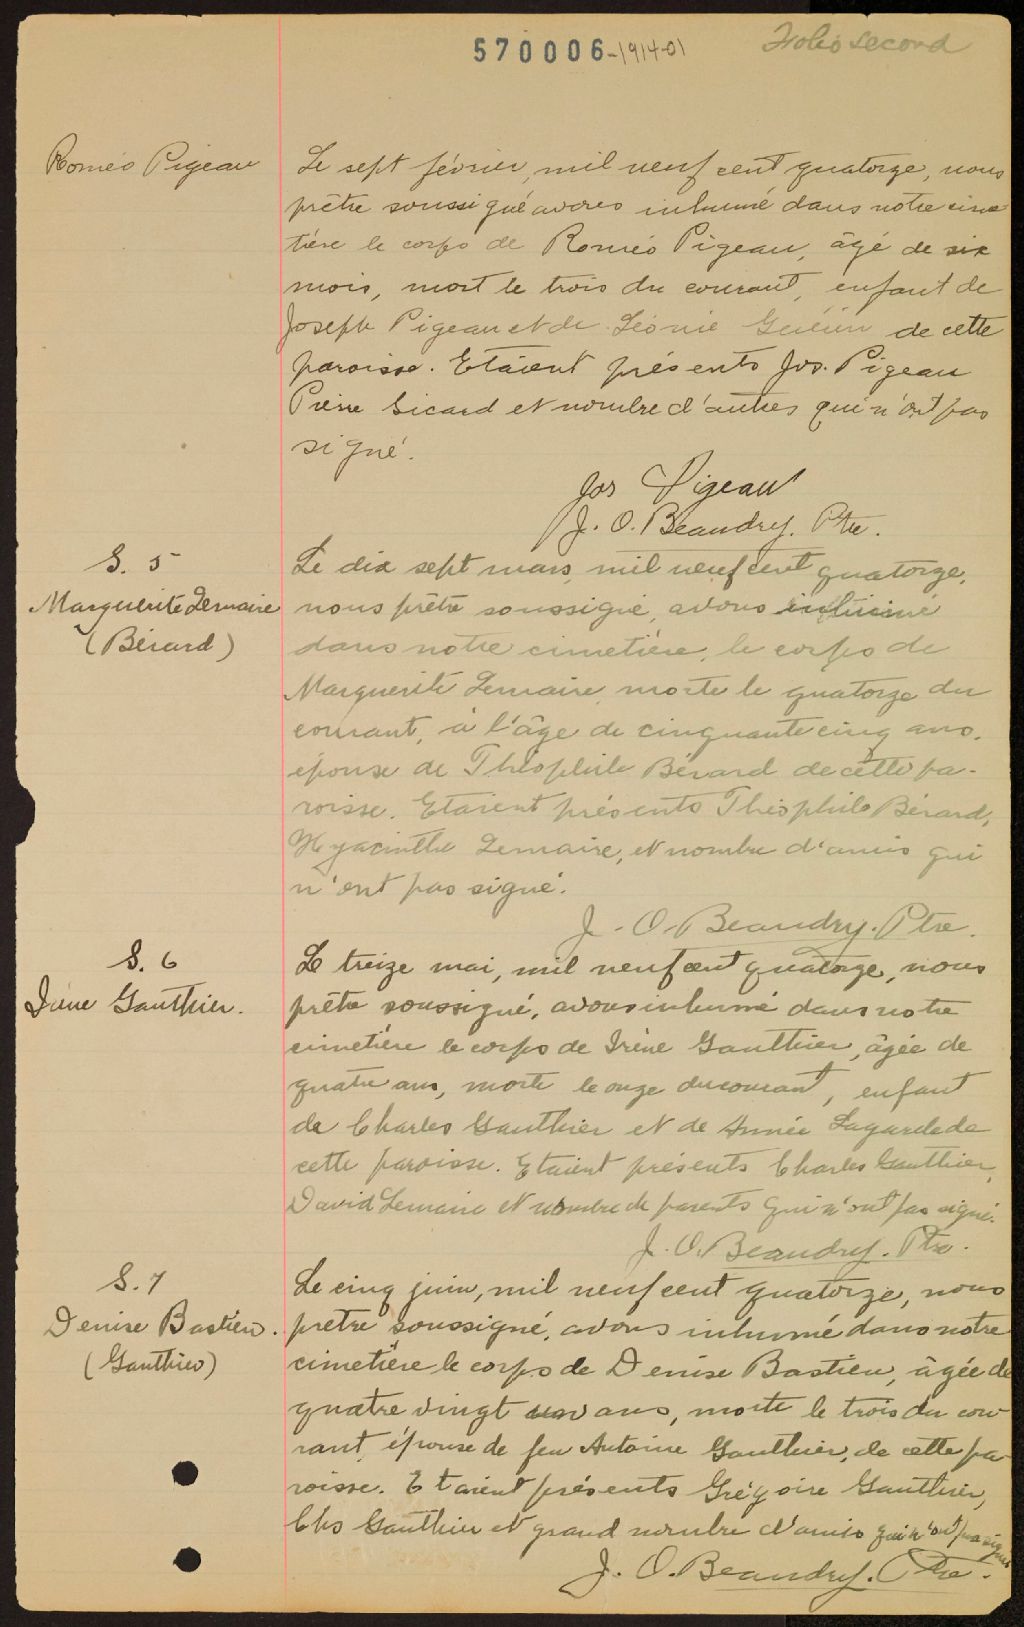 570006-1914-01
Folio second
Roméo Pigeau
Le sept février, mil neuf cent quatorze, nous
prêtre soussigné avons inhumé dans notre cime
tière le corps de Roméo Pigeau, âgé de six
mois, mort le trois du courant, enfant de
Joseph Pigeau et de Léonie de cette
paroisse. Etaient présents Jos. Pigeau
Pierre Sicard et nombre d'autres qui n'ont pas
signé.
Jos Pigeau
J. O. Beaudry. Ptre.
S. 5
Marguerite Lemaire
(Bérard)
Le dix sept mars, mil neuf cent quatorze,
nous prêtre soussigné, avons inhumé
dans notre cimetière, le corps de
Marguerite Lemaire, morte le quatorze du
courant, à l'âge de cinquante cinq ans.
épouse de Théophile Bérard de cette pa-
roisse. Etaient présents Théophile Bérard,
Hyacinthe Lemaire, et nombre d'amis qui
n'ont pas signé.
J. O. Beaudry. Ptre.
S. 6
Irène Gauthier.
Le treize mai, mil neuf cent quatorze, nous
prêtre soussigné, avons inhumé dans notre
cimetière le corps de Irène Gauthier, âgée de
quatre ans, morte le onze du courant, enfant
de Charles Gauthier et de Lagarde de
cette paroisse. Etaient présents Charles Gauthier,
David Lemaire et nombre de parents qui n'ont pas signé.
J. O. Beaudry. Ptre.
S. 7
Denise Bastien.
(Gauthier)
Le cinq juin, mil neuf cent quatorze, nous
prêtre soussigné, avons inhumé dans notre
cimetière le corps de Denise Bastien, âgée de
quatre vingt ans, morte le trois du cou-
rant, épouse de feu Antoine Gauthier, de cette pa-
roisse. Etaient présents Grégoire Gauthier,
Chs Gauthier et grand nombre d'amis qui n'ont pas signé
J. O. Beaudry. Ptre.